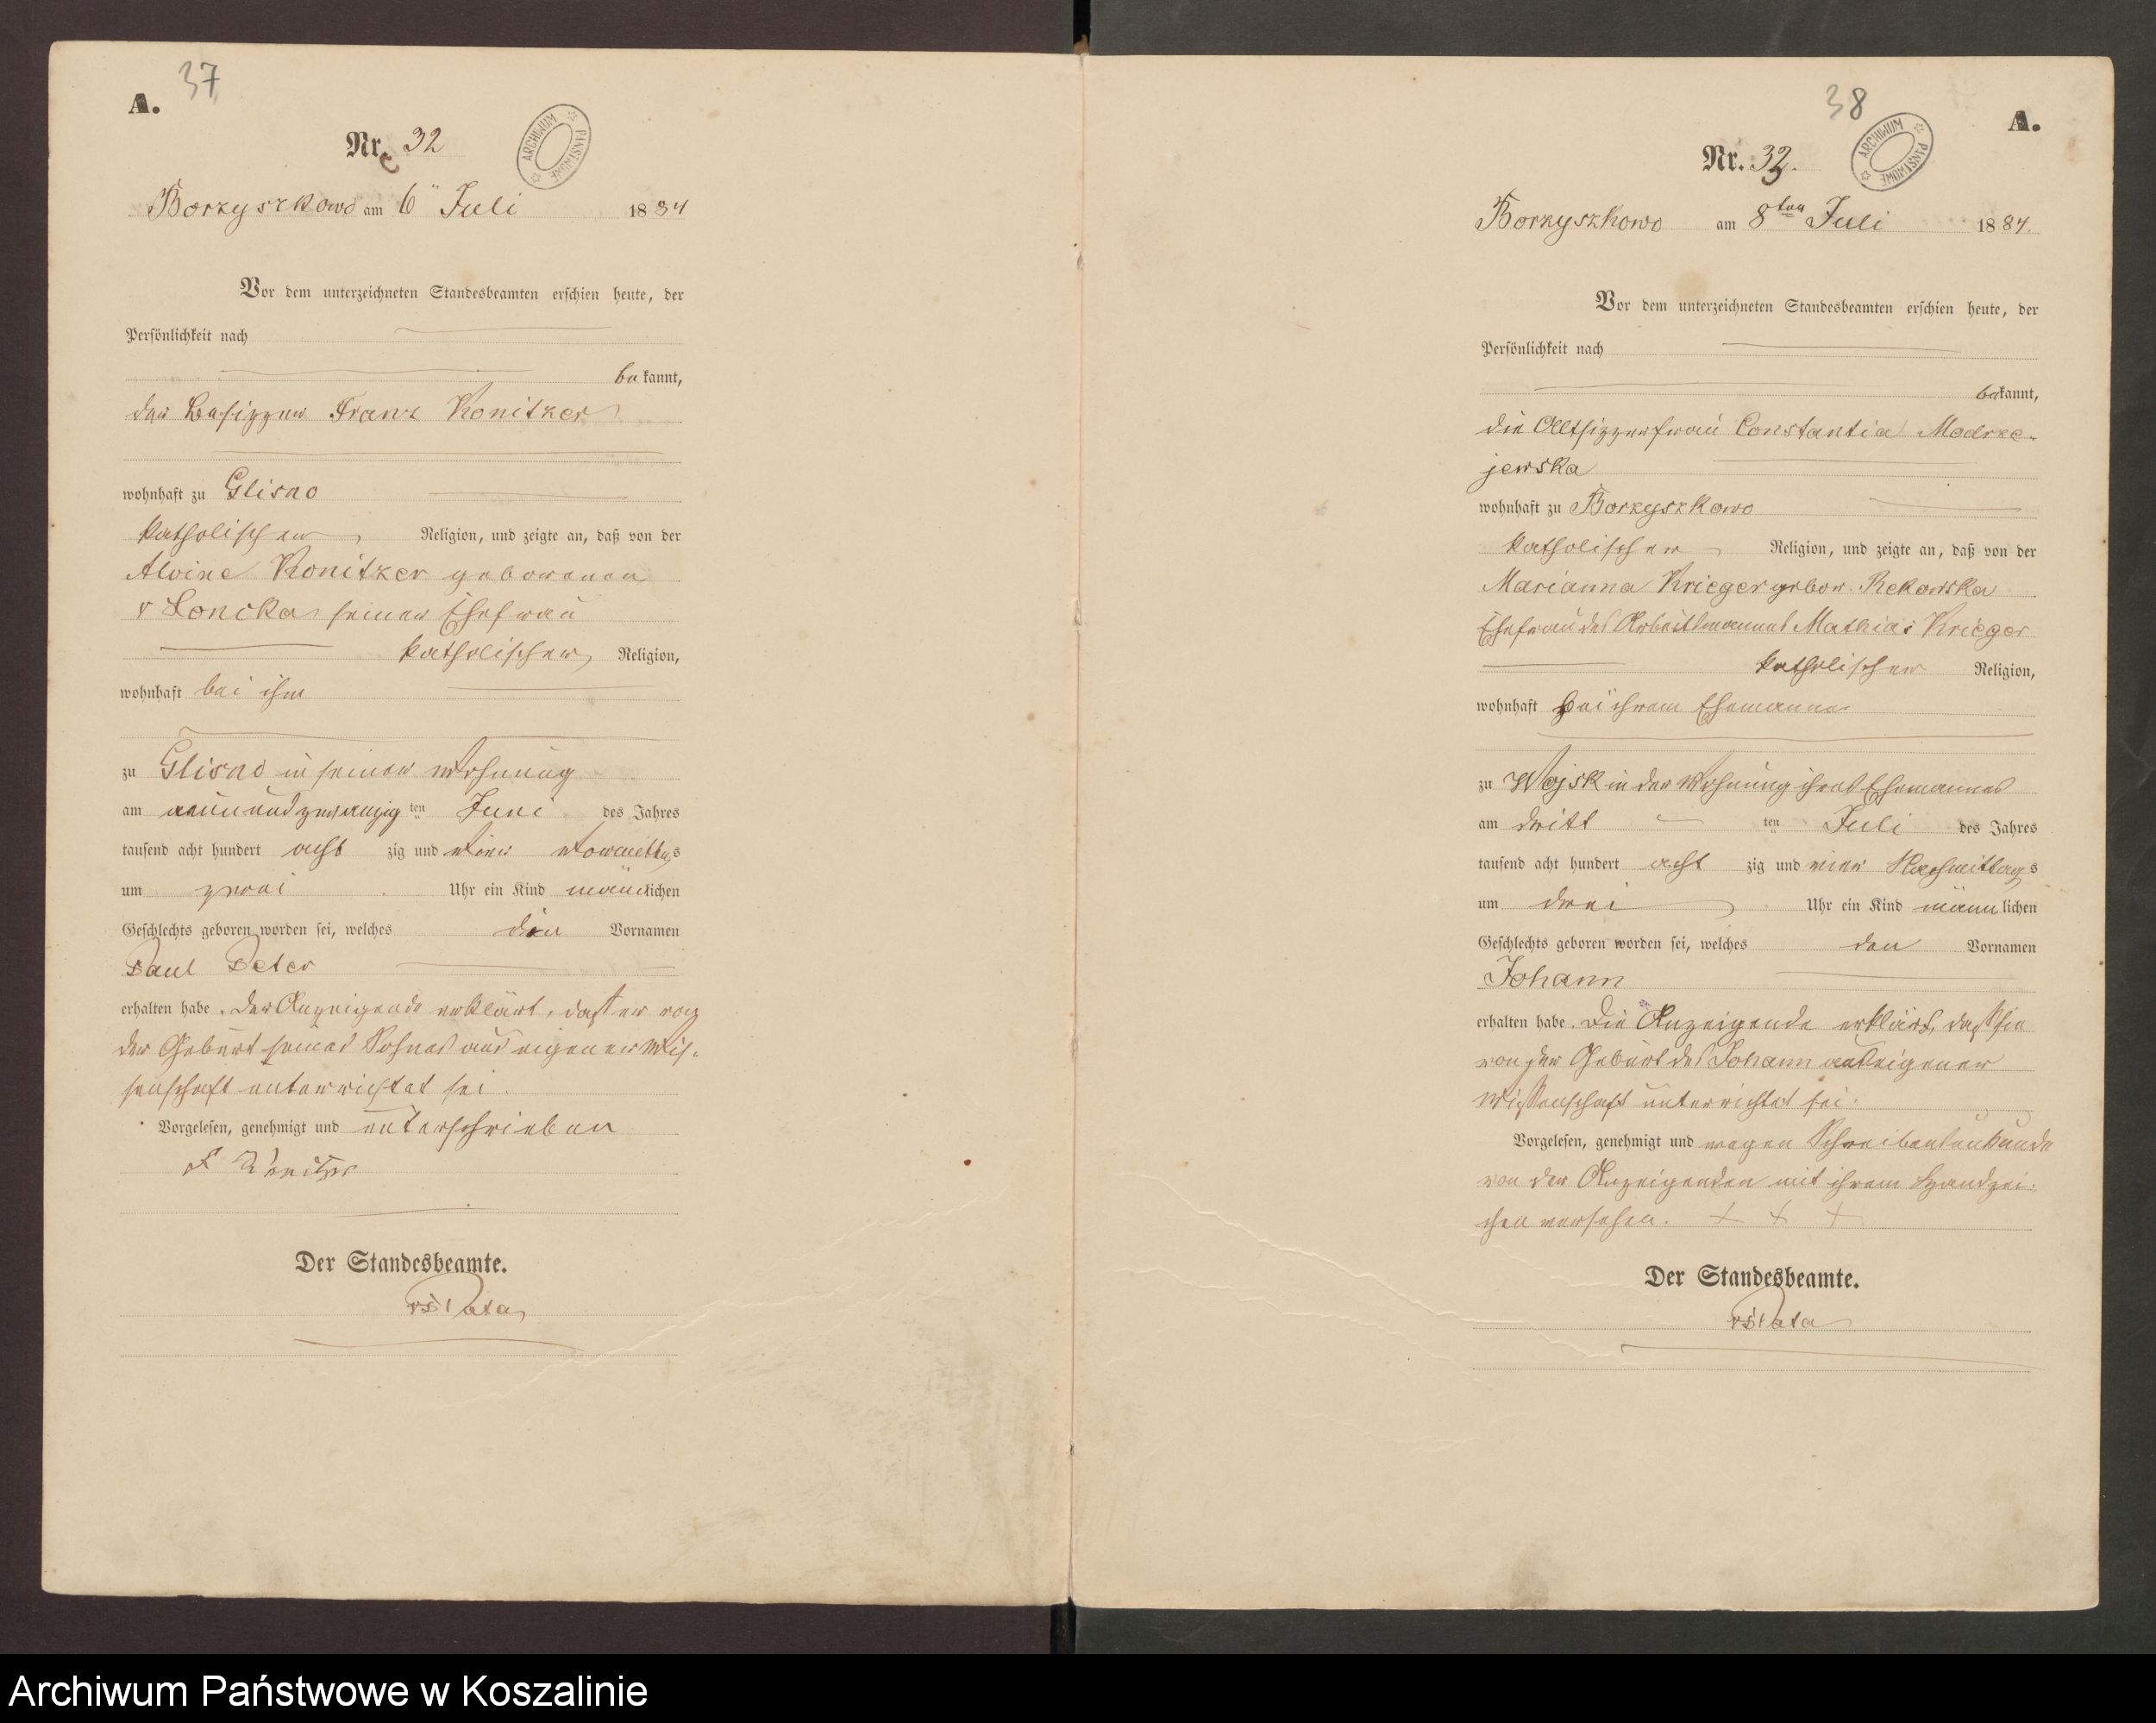 37
A.
Nr. 32
ARCHIWUM PAŃSTWOWE
Borzyszkowo am 6 Juli 1884
Vor dem unterzeichneten Standesbeamten erschien heute, der
Persönlichkeit nach
bekannt,
der Besitzer Franz Konitzer
wohnhaft zu Glisno
katholischer Religion, und zeigte an, daß von der
Alvine Konitzer geborenen
v Loncka seiner Ehefrau
katholischer Religion,
wohnhaft bei ihm
zu Glisno in seiner Wohnung
am neunundzwanzig ten Juni des Jahres
tausend acht hundert acht zig und vier Vormittags
um zwei Uhr ein Kind männlichen
Geschlechts geboren worden sei, welches die Vornamen
Paul Peter
erhalten habe. Der Anzeigende erklärt, daß er von
der Geburt seines Sohnes aus eigener Wis-
senschaft unterrichtet sei.
Vorgelesen, genehmigt und unterschrieben
F Konitzer
Der Standesbeamte.
38
A.
Nr. 33.
ARCHIWUM PAŃSTWOWE
Borzyszkowo am 8ten Juli 1884.
Vor dem unterzeichneten Standesbeamten erschien heute, der
Persönlichkeit nach
bekannt,
die Altsitzerfrau Constantia Modrze-
jewska
wohnhaft zu Borzyszkowo
katholischer Religion, und zeigte an, daß von der
Marianna Krieger gebor. Rekowska
Ehefrau des Arbeitsmannes Mathias Krieger
katholischer Religion,
wohnhaft bei ihrem Ehemanne
zu Wojsk in der Wohnung ihres Ehemannes
am dritt ten Juli des Jahres
tausend acht hundert acht zig und vier Nachmittags
um drei Uhr ein Kind männlichen
Geschlechts geboren worden sei, welches den Vornamen
Johann
erhalten habe. Die Anzeigende erklärt, daß sie
von der Geburt des Johann aus eigener
Wissenschaft unterrichtet sei.
Vorgelesen, genehmigt und wegen Schreibensunkunde
von der Anzeigenden mit ihrem Handzei-
chen versehen. + + +
Der Standesbeamte.
Archiwum Państwowe w Koszalinie